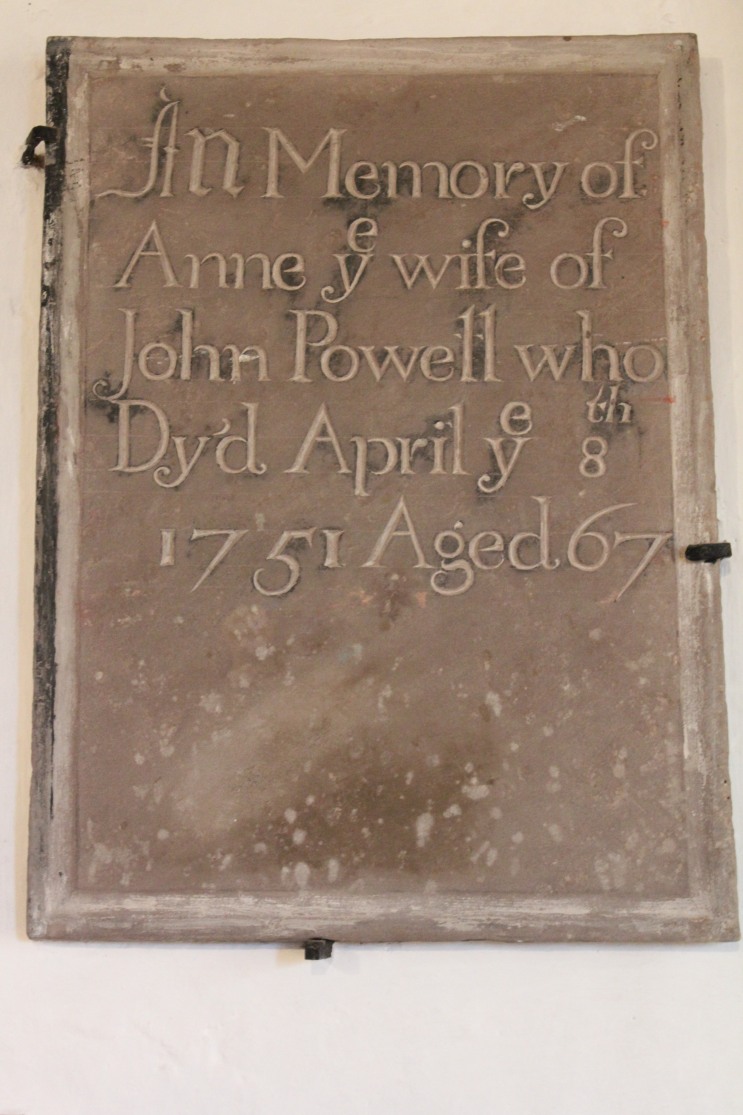 In Memory of
Anne yᵉ wife of
John Powell who
Dy'd April yᵉ 8ᵗʰ
1751 Aged 67